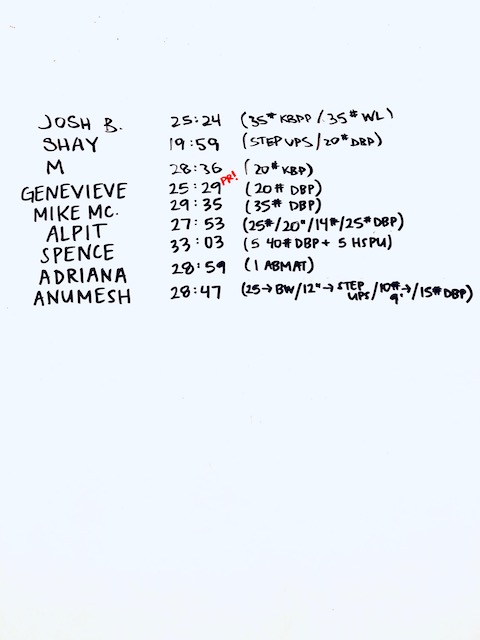 JOSH B. 25:24 (35# KBDP / 35# WL)
SHAY 19:59 (STEP UPS / 20# DBP)
M 28:36 (20# KBP)
GENEVIEVE 25:29 PR! (20# DBP)
MIKE MC. 29:35 (35# DBP)
ALPIT 27:53 (25#/20"/14#/25# DBP)
SPENCE 33:03 (5 40# DBP + 5 HSPU)
ADRIANA 28:59 (1 ABMAT)
ANUMESH 28:47 (25→BW/12"→STEP UPS/10#→9'/15# DBP)